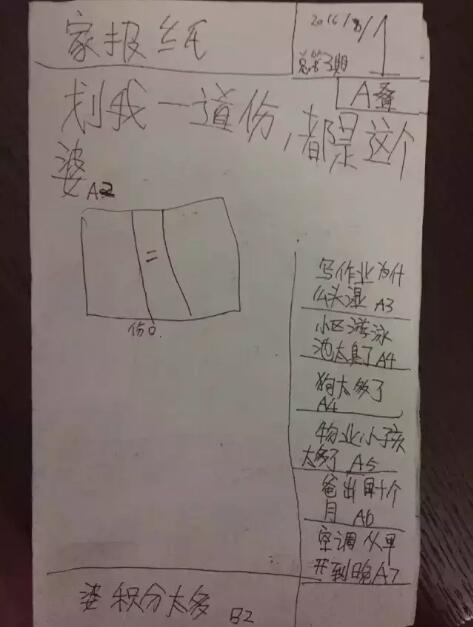 家报纸
2016/8/1
总第3期
A叠
划我一道份,都是这个
婆 A2
份口
写作业为什
么头湿 A3
小区游泳
池太臭了 A4
狗太多了
A4
物业小孩
太多了 A5
爸出24个
月 A6
空调从早
开到晚 A7
婆积分太多 B2